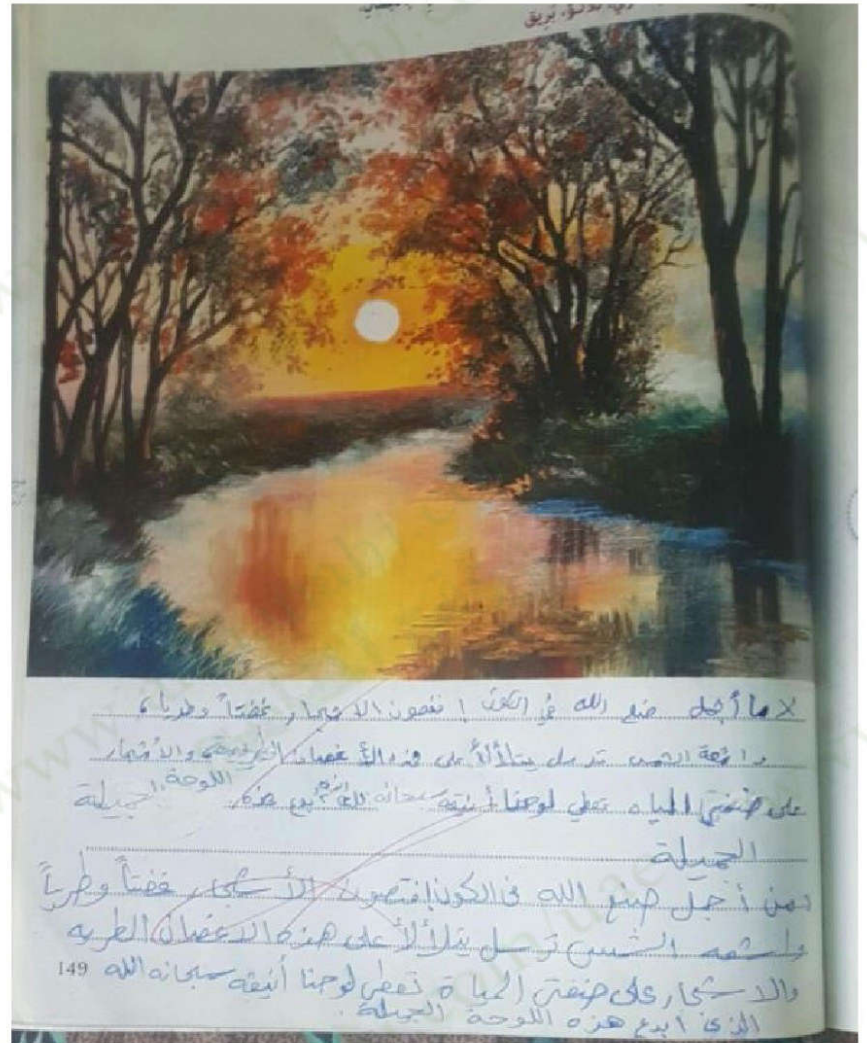 تلألؤ، بريق
لا ما أجمل صنع الله في الكون ! فغصون الاشجار غضتاً وطرياً،
واشعة الشمس ترسل يتلألأ على هذه الأغصان والأشجار
على ضفتي المياه تعطي لوحتنا أنيقه سبحانه الله أبدع هذه اللوحة الجميلة
الجميلة
فمن أجمل صنع الله في الكون الأشجار غضتاً وطرياً
واشعه الشمس ترسل يتلألأ على هذه الاغصان الطريه
والاشجار على ضفتي المياة تعطي لوحتنا أنيقه سبحانه الله
149
الذي أبدع هذه اللوحة الجميلة.